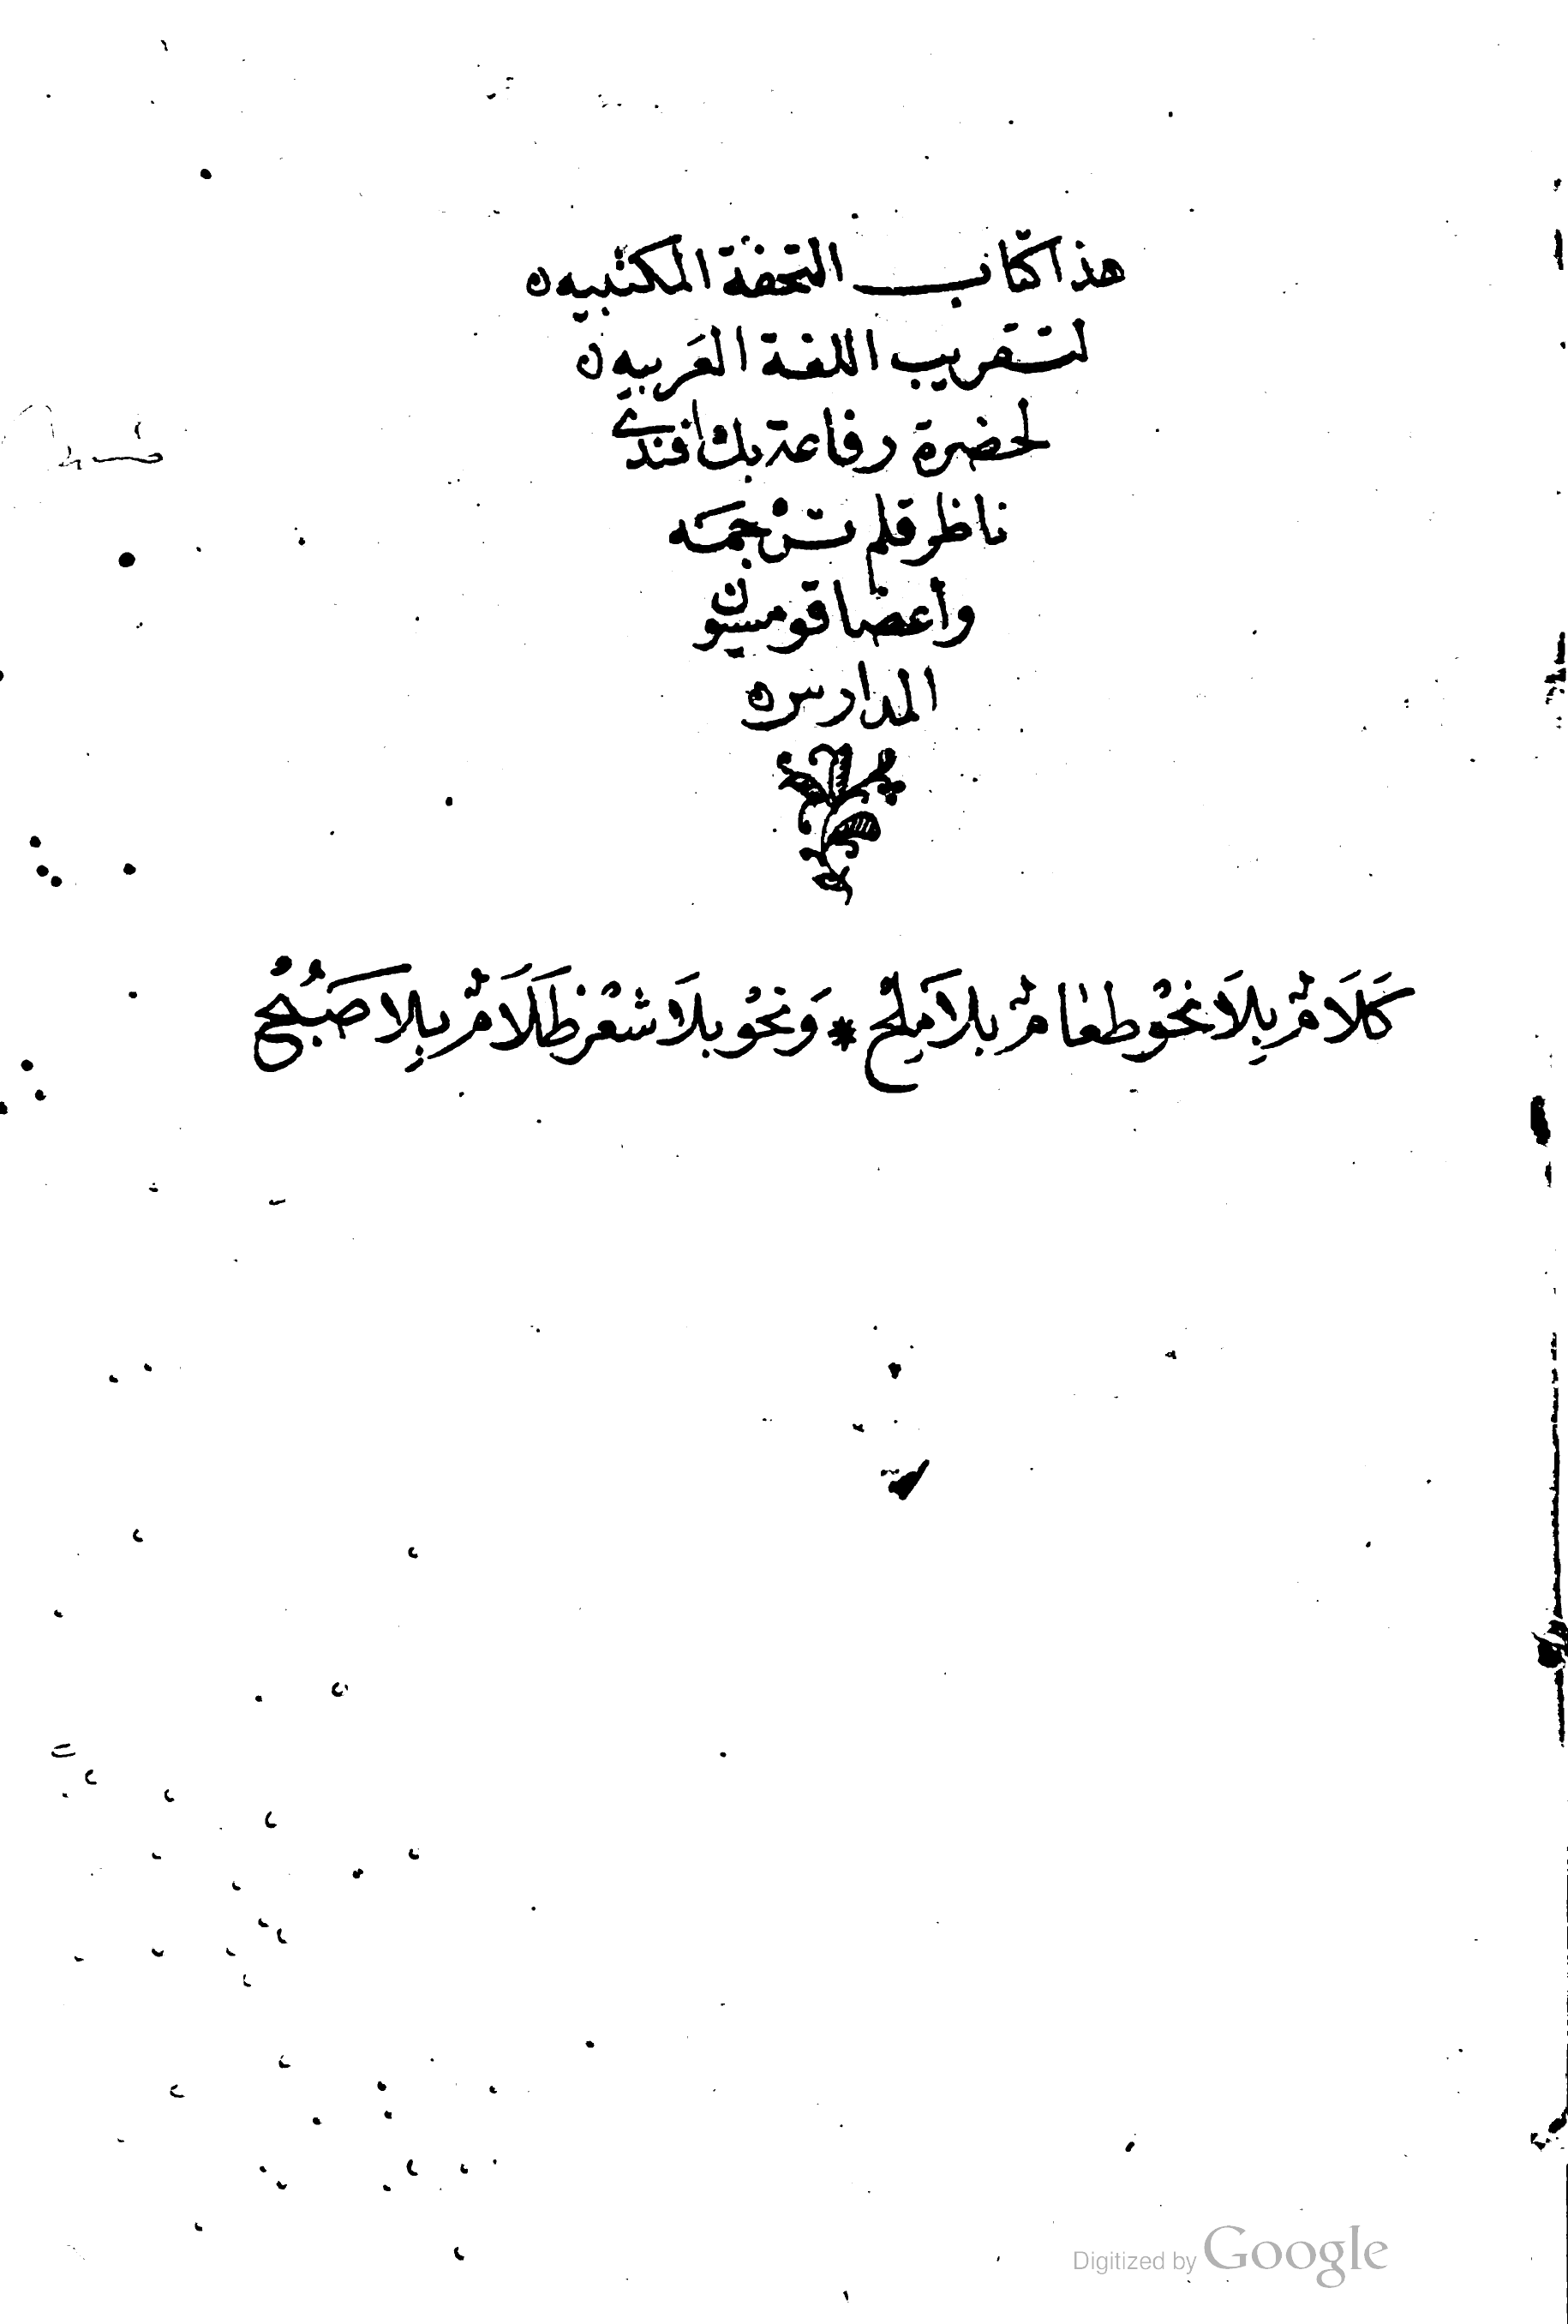 هذا كتاب التحفة المكتبيه
لتقريب اللغة العَربيه
لحضرة رفاعة بك افندى
ناظر قلم تَرْجمَه
وأعضا قومسيون
المدارس
كَلَامٌ بِلَا نَحْوٍ طعَامٌ بلا مِلْحٍ * وَنَحْوٌ بلَا شعْرٍ ظَلَامٌ بِلا صُبْحُ
Digitized by Google